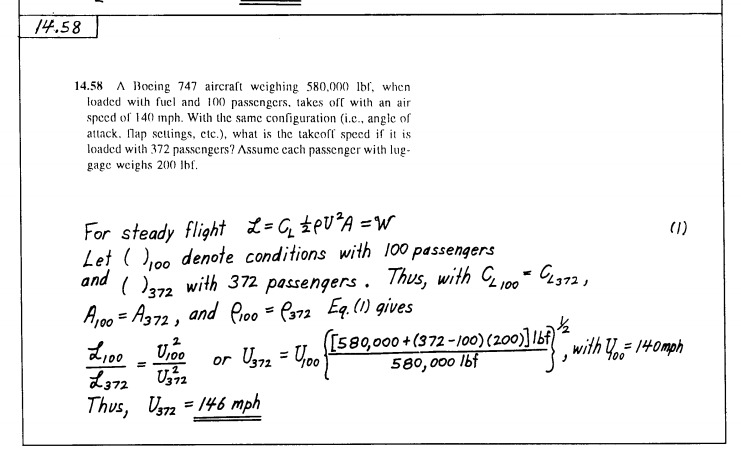 14.58
14.58 A Boeing 747 aircraft weighing 580,000 lbf, when
loaded with fuel and 100 passengers, takes off with an air
speed of 140 mph. With the same configuration (i.e., angle of
attack, flap settings, etc.), what is the takeoff speed if it is
loaded with 372 passengers? Assume each passenger with lug-
gage weighs 200 lbf.
For steady flight ℒ = C_L ½ρU²A = W (1)
Let ( )₁₀₀ denote conditions with 100 passengers
and ( )₃₇₂ with 372 passengers. Thus, with C_L₁₀₀ = C_L₃₇₂,
A₁₀₀ = A₃₇₂, and ρ₁₀₀ = ρ₃₇₂ Eq. (1) gives
ℒ₁₀₀/ℒ₃₇₂ = U²₁₀₀/U²₃₇₂ or U₃₇₂ = U₁₀₀ {[580,000+(372-100)(200)] lbf / 580,000 lbf}^½, with U₁₀₀ = 140mph
Thus, U₃₇₂ = 146 mph